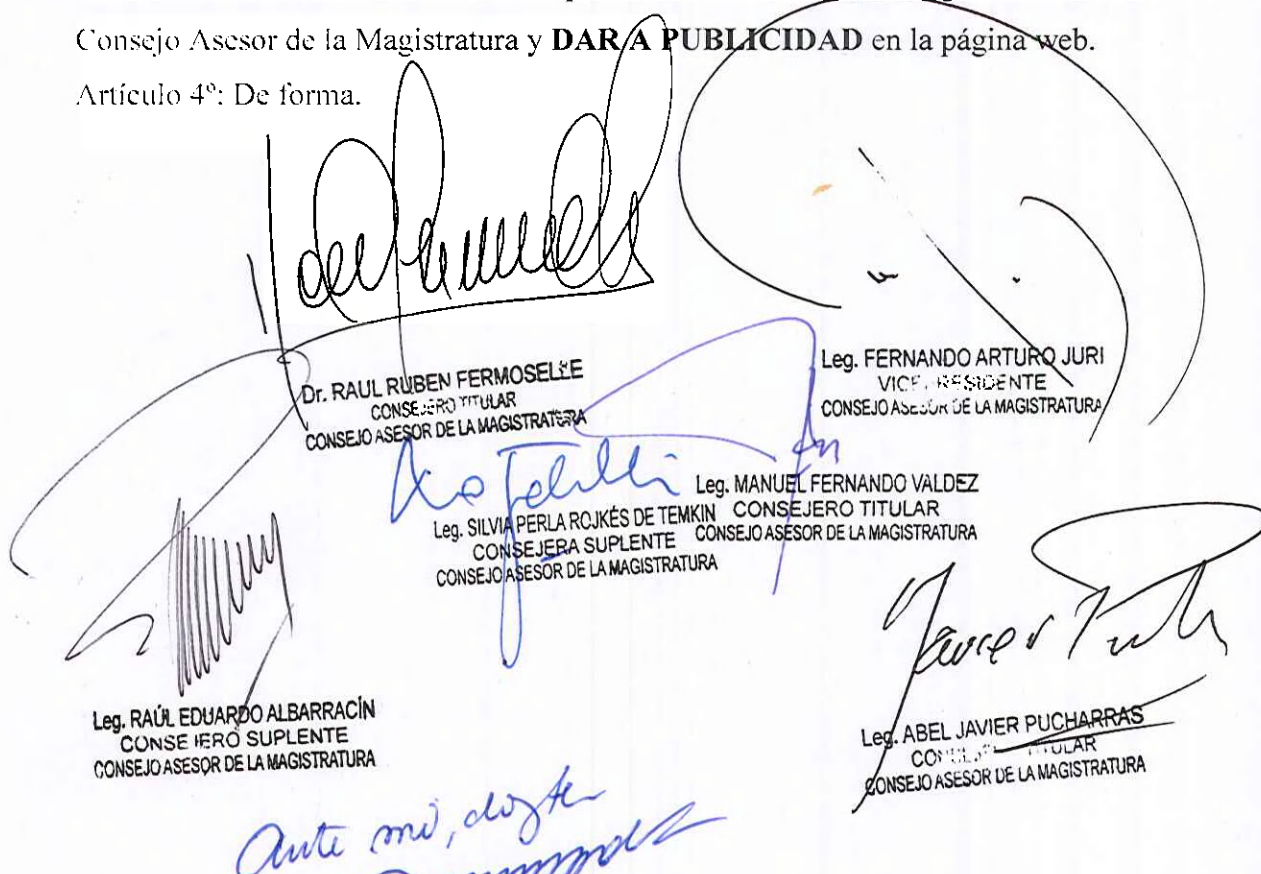 Consejo Asesor de la Magistratura y DAR A PUBLICIDAD en la página web.
Artículo 4º: De forma.
Dr. RAUL RUBEN FERMOSELLE
CONSEJERO TITULAR
CONSEJO ASESOR DE LA MAGISTRATURA
Leg. FERNANDO ARTURO JURI
VICEPRESIDENTE
CONSEJO ASESOR DE LA MAGISTRATURA
Leg. MANUEL FERNANDO VALDEZ
CONSEJERO TITULAR
CONSEJO ASESOR DE LA MAGISTRATURA
Leg. SILVIA PERLA ROJKÉS DE TEMKIN
CONSEJERA SUPLENTE
CONSEJO ASESOR DE LA MAGISTRATURA
Leg. RAÚL EDUARDO ALBARRACÍN
CONSEJERO SUPLENTE
CONSEJO ASESOR DE LA MAGISTRATURA
Javier
Leg. ABEL JAVIER PUCHARRAS
CONSEJERO TITULAR
CONSEJO ASESOR DE LA MAGISTRATURA
Ante mí, doy fe